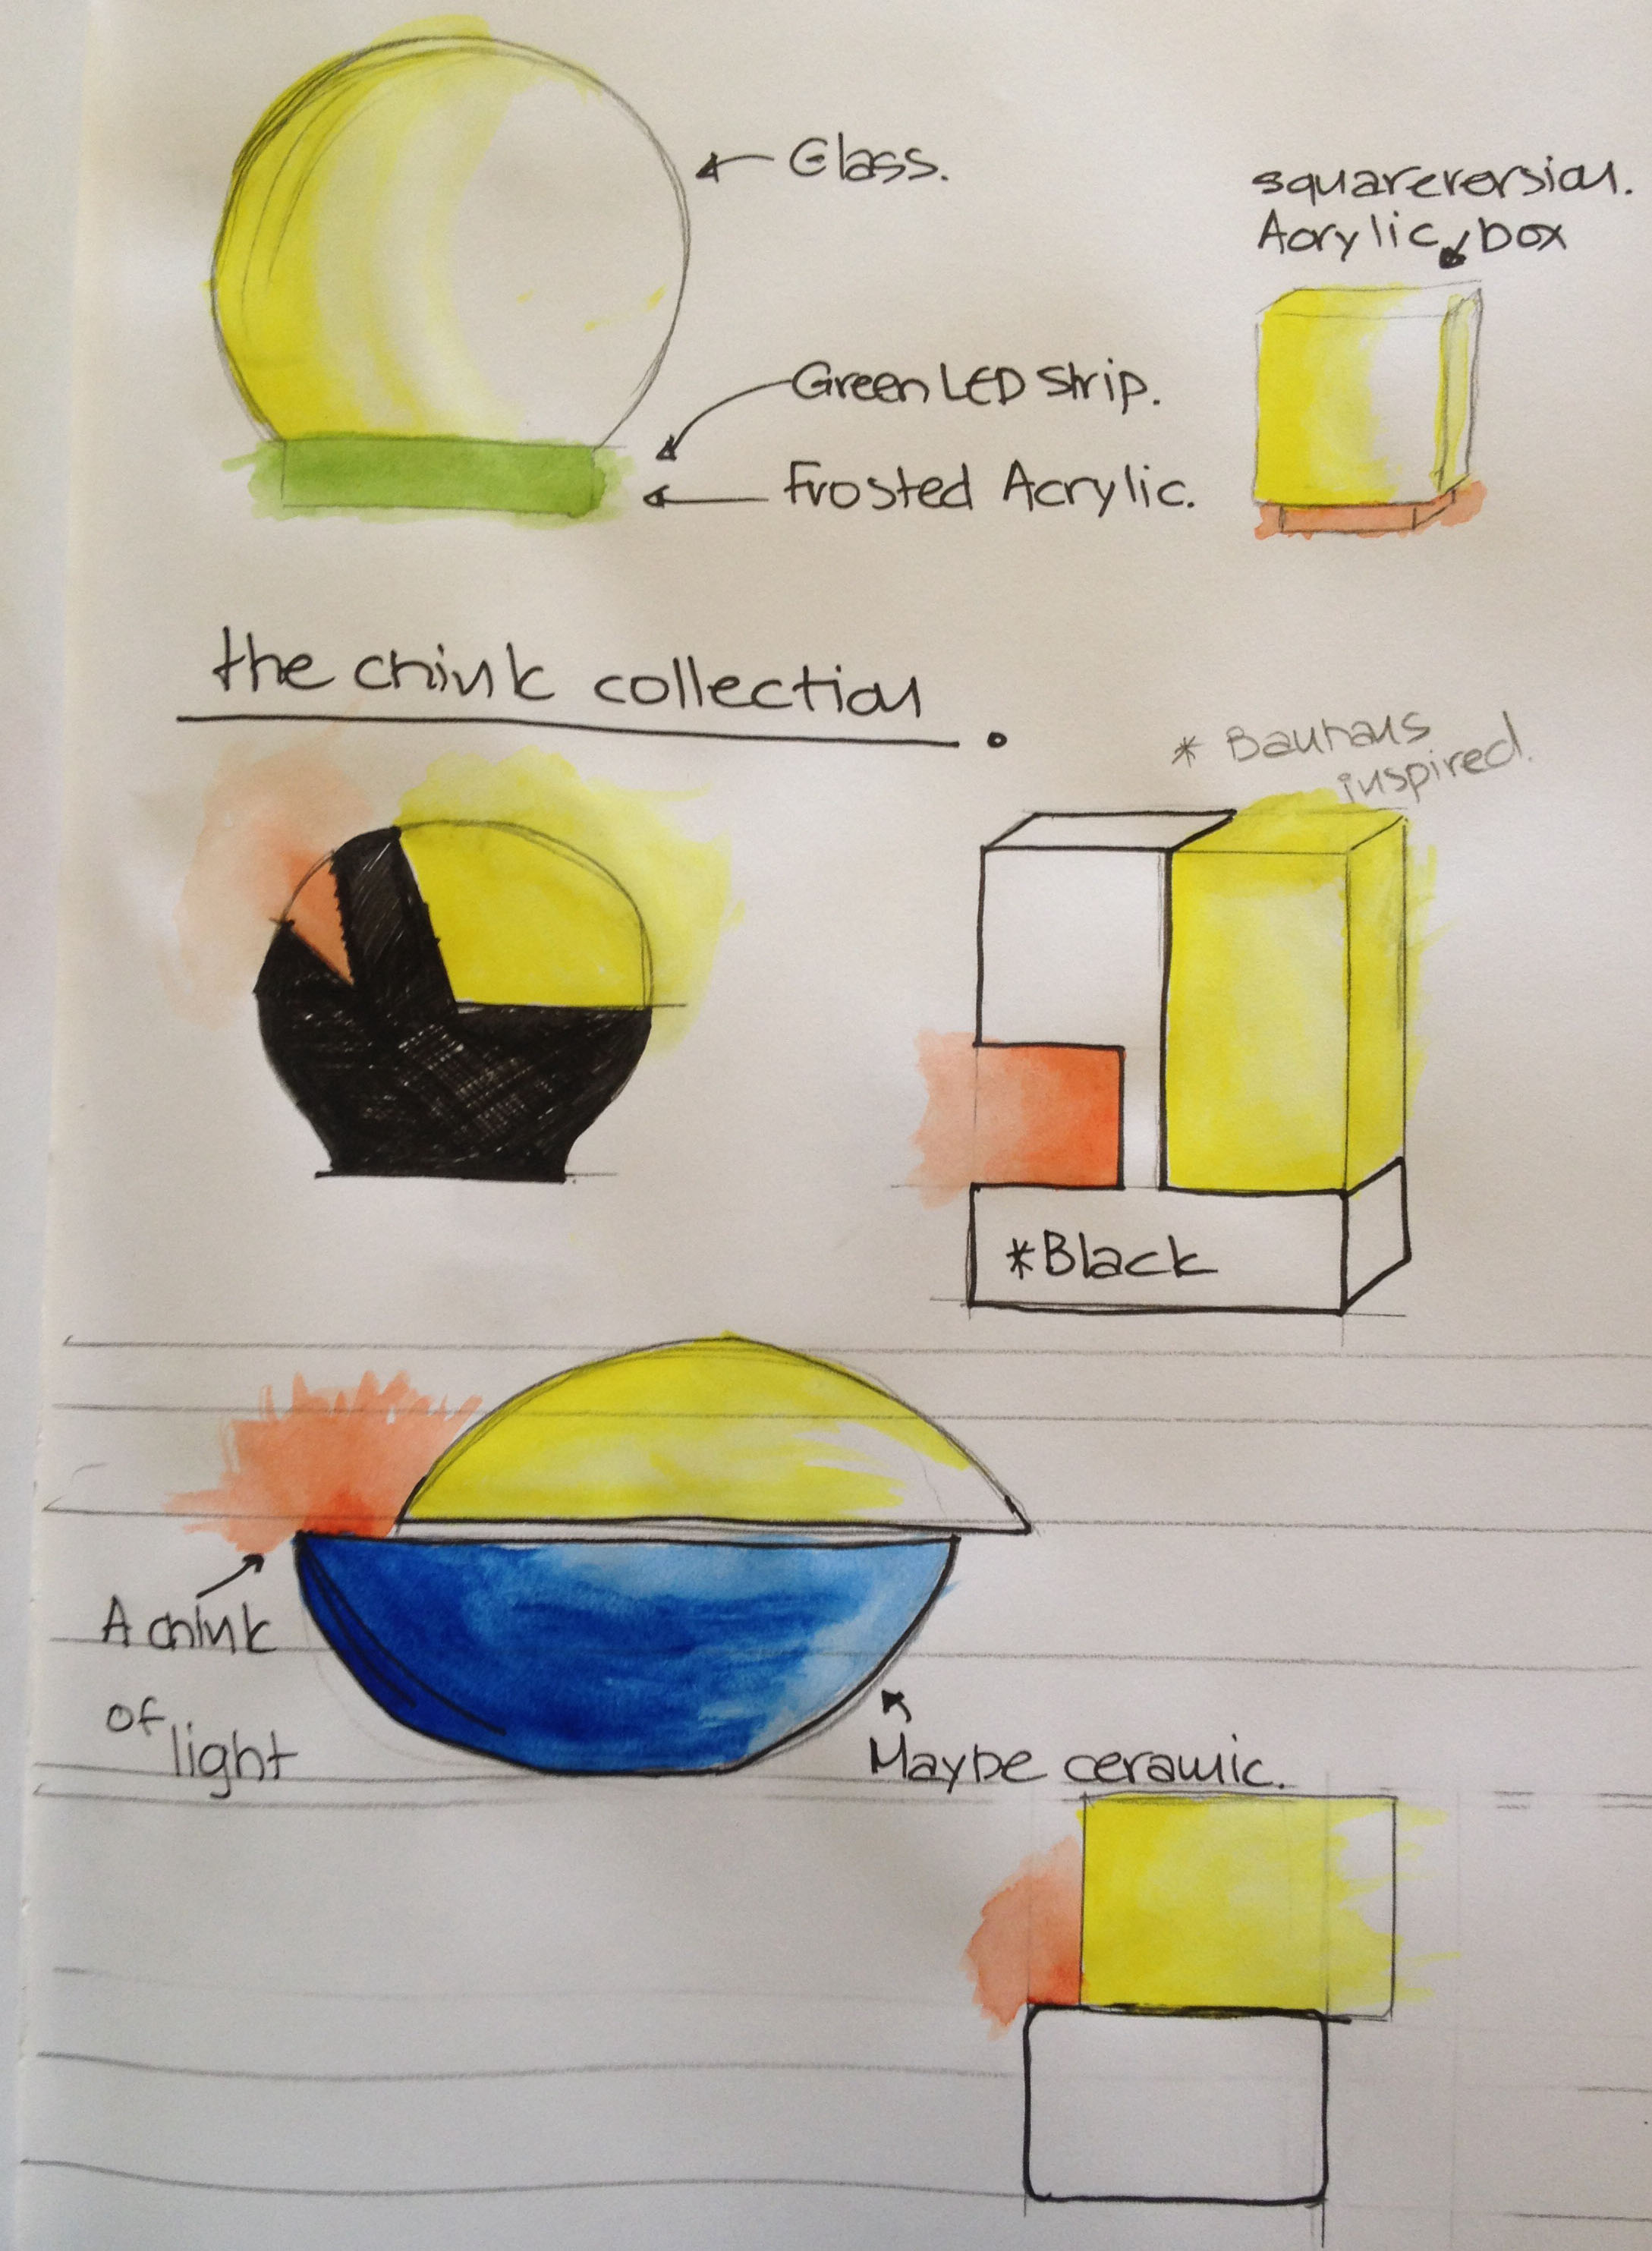 Glass.
squareversion.
Acrylic box
Green LED Strip.
Frosted Acrylic.
the chink collection.
* Bauhaus
inspired.
*Black
A chink
of
light
Maybe ceramic.